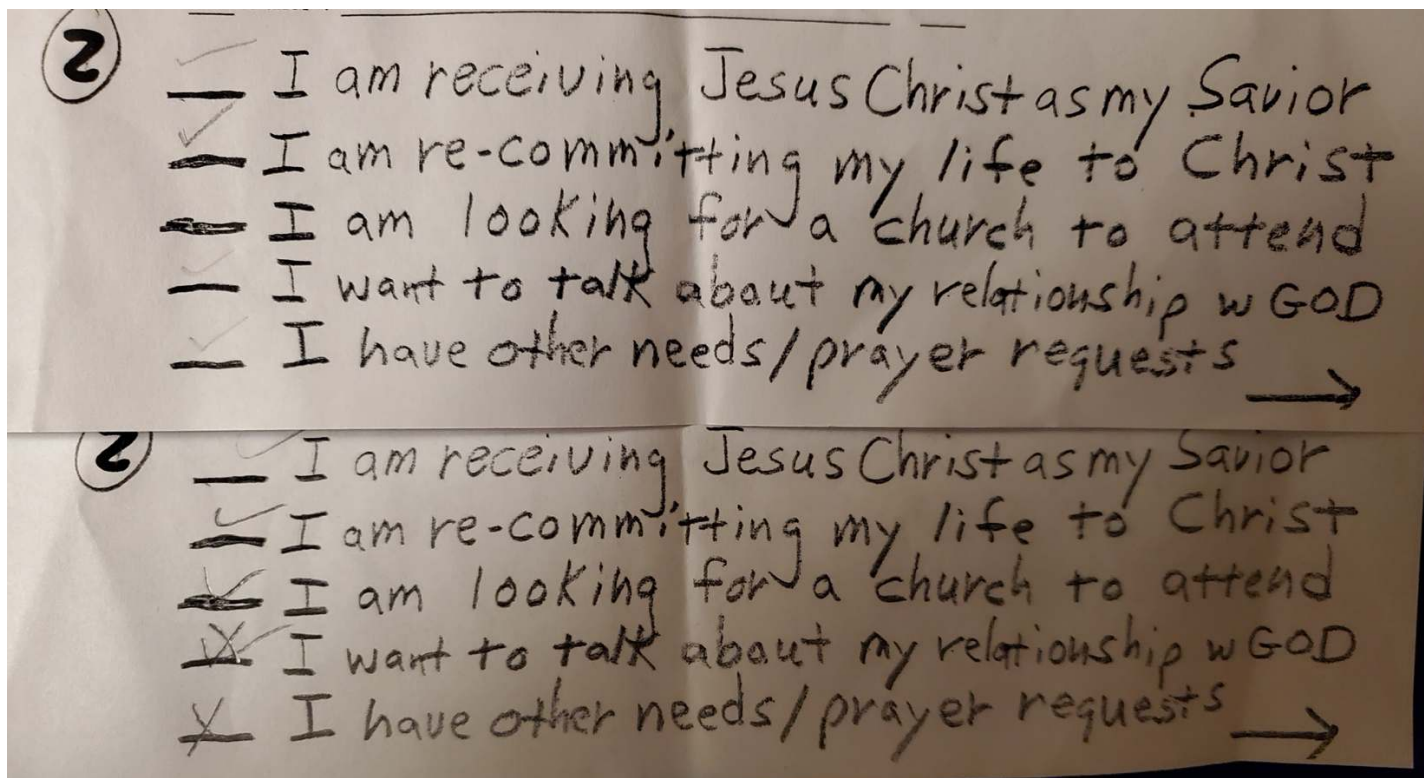 2 ✓ I am receiving Jesus Christ as my Savior
✓ I am re-committing my life to Christ
I am looking for a church to attend
✓ I want to talk about my relationship w GOD
✓ I have other needs/prayer requests →
2 ✓ I am receiving Jesus Christ as my Savior
✓ I am re-committing my life to Christ
✓ I am looking for a church to attend
X✓ I want to talk about my relationship w GOD
X I have other needs/prayer requests →